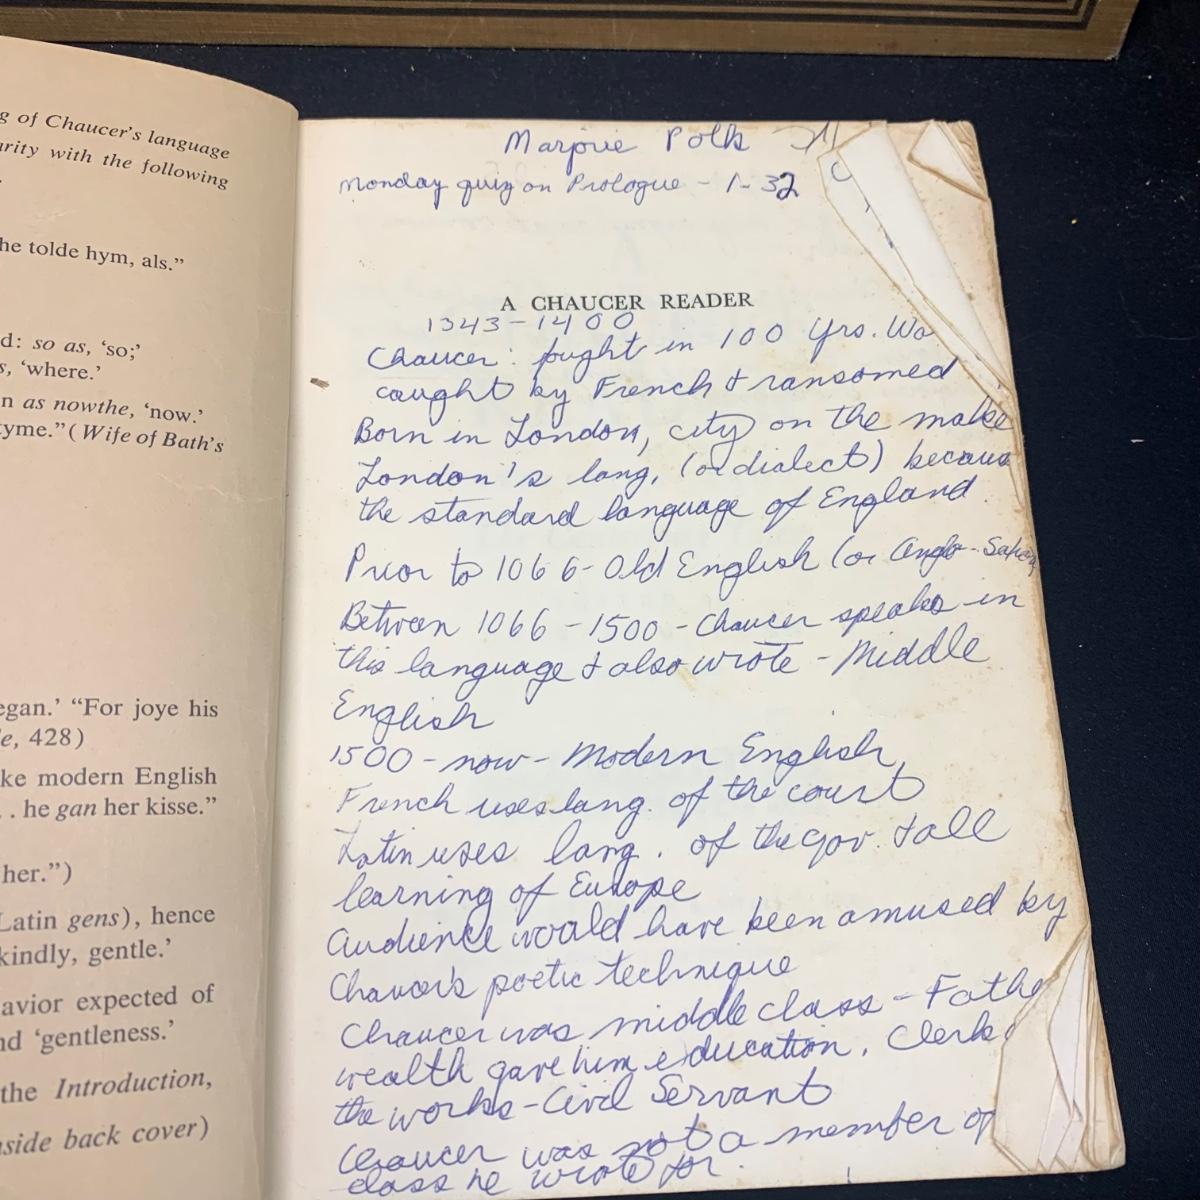 g of Chaucer's language
arity with the following
he tolde hym, als."
d: so as, 'so;'
s, 'where.'
n as nowthe, 'now.'
tyme." (Wife of Bath's
egan.' "For joye his
e, 428)
ke modern English
. . he gan her kisse."
her.")
Latin gens), hence
kindly, gentle.'
avior expected of
nd 'gentleness.'
the Introduction,
nside back cover)
Polk
Monday quiz on Prologue - 1-32
A CHAUCER READER
1343-1400
Chaucer: fought in 100 Yrs. Wa
caught by French & ransomed
Born in London, city on the make
London's lang. (or dialect) becaus
the standard language of England
Prior to 1066 - Old English (or Anglo-Saxon
Between 1066 - 1500 - Chaucer speaks in
this language & also wrote - Middle
English
1500 - now - Modern English
French uses lang. of the court
Latin uses lang. of the gov. & all
learning of Europe
Audience would have been amused by
Chaucer's poetic technique
Chaucer was middle class - Fathe
wealth gave him education. Clerk
the works - Civil Servant
Chaucer was not a member of
class he wrote for.